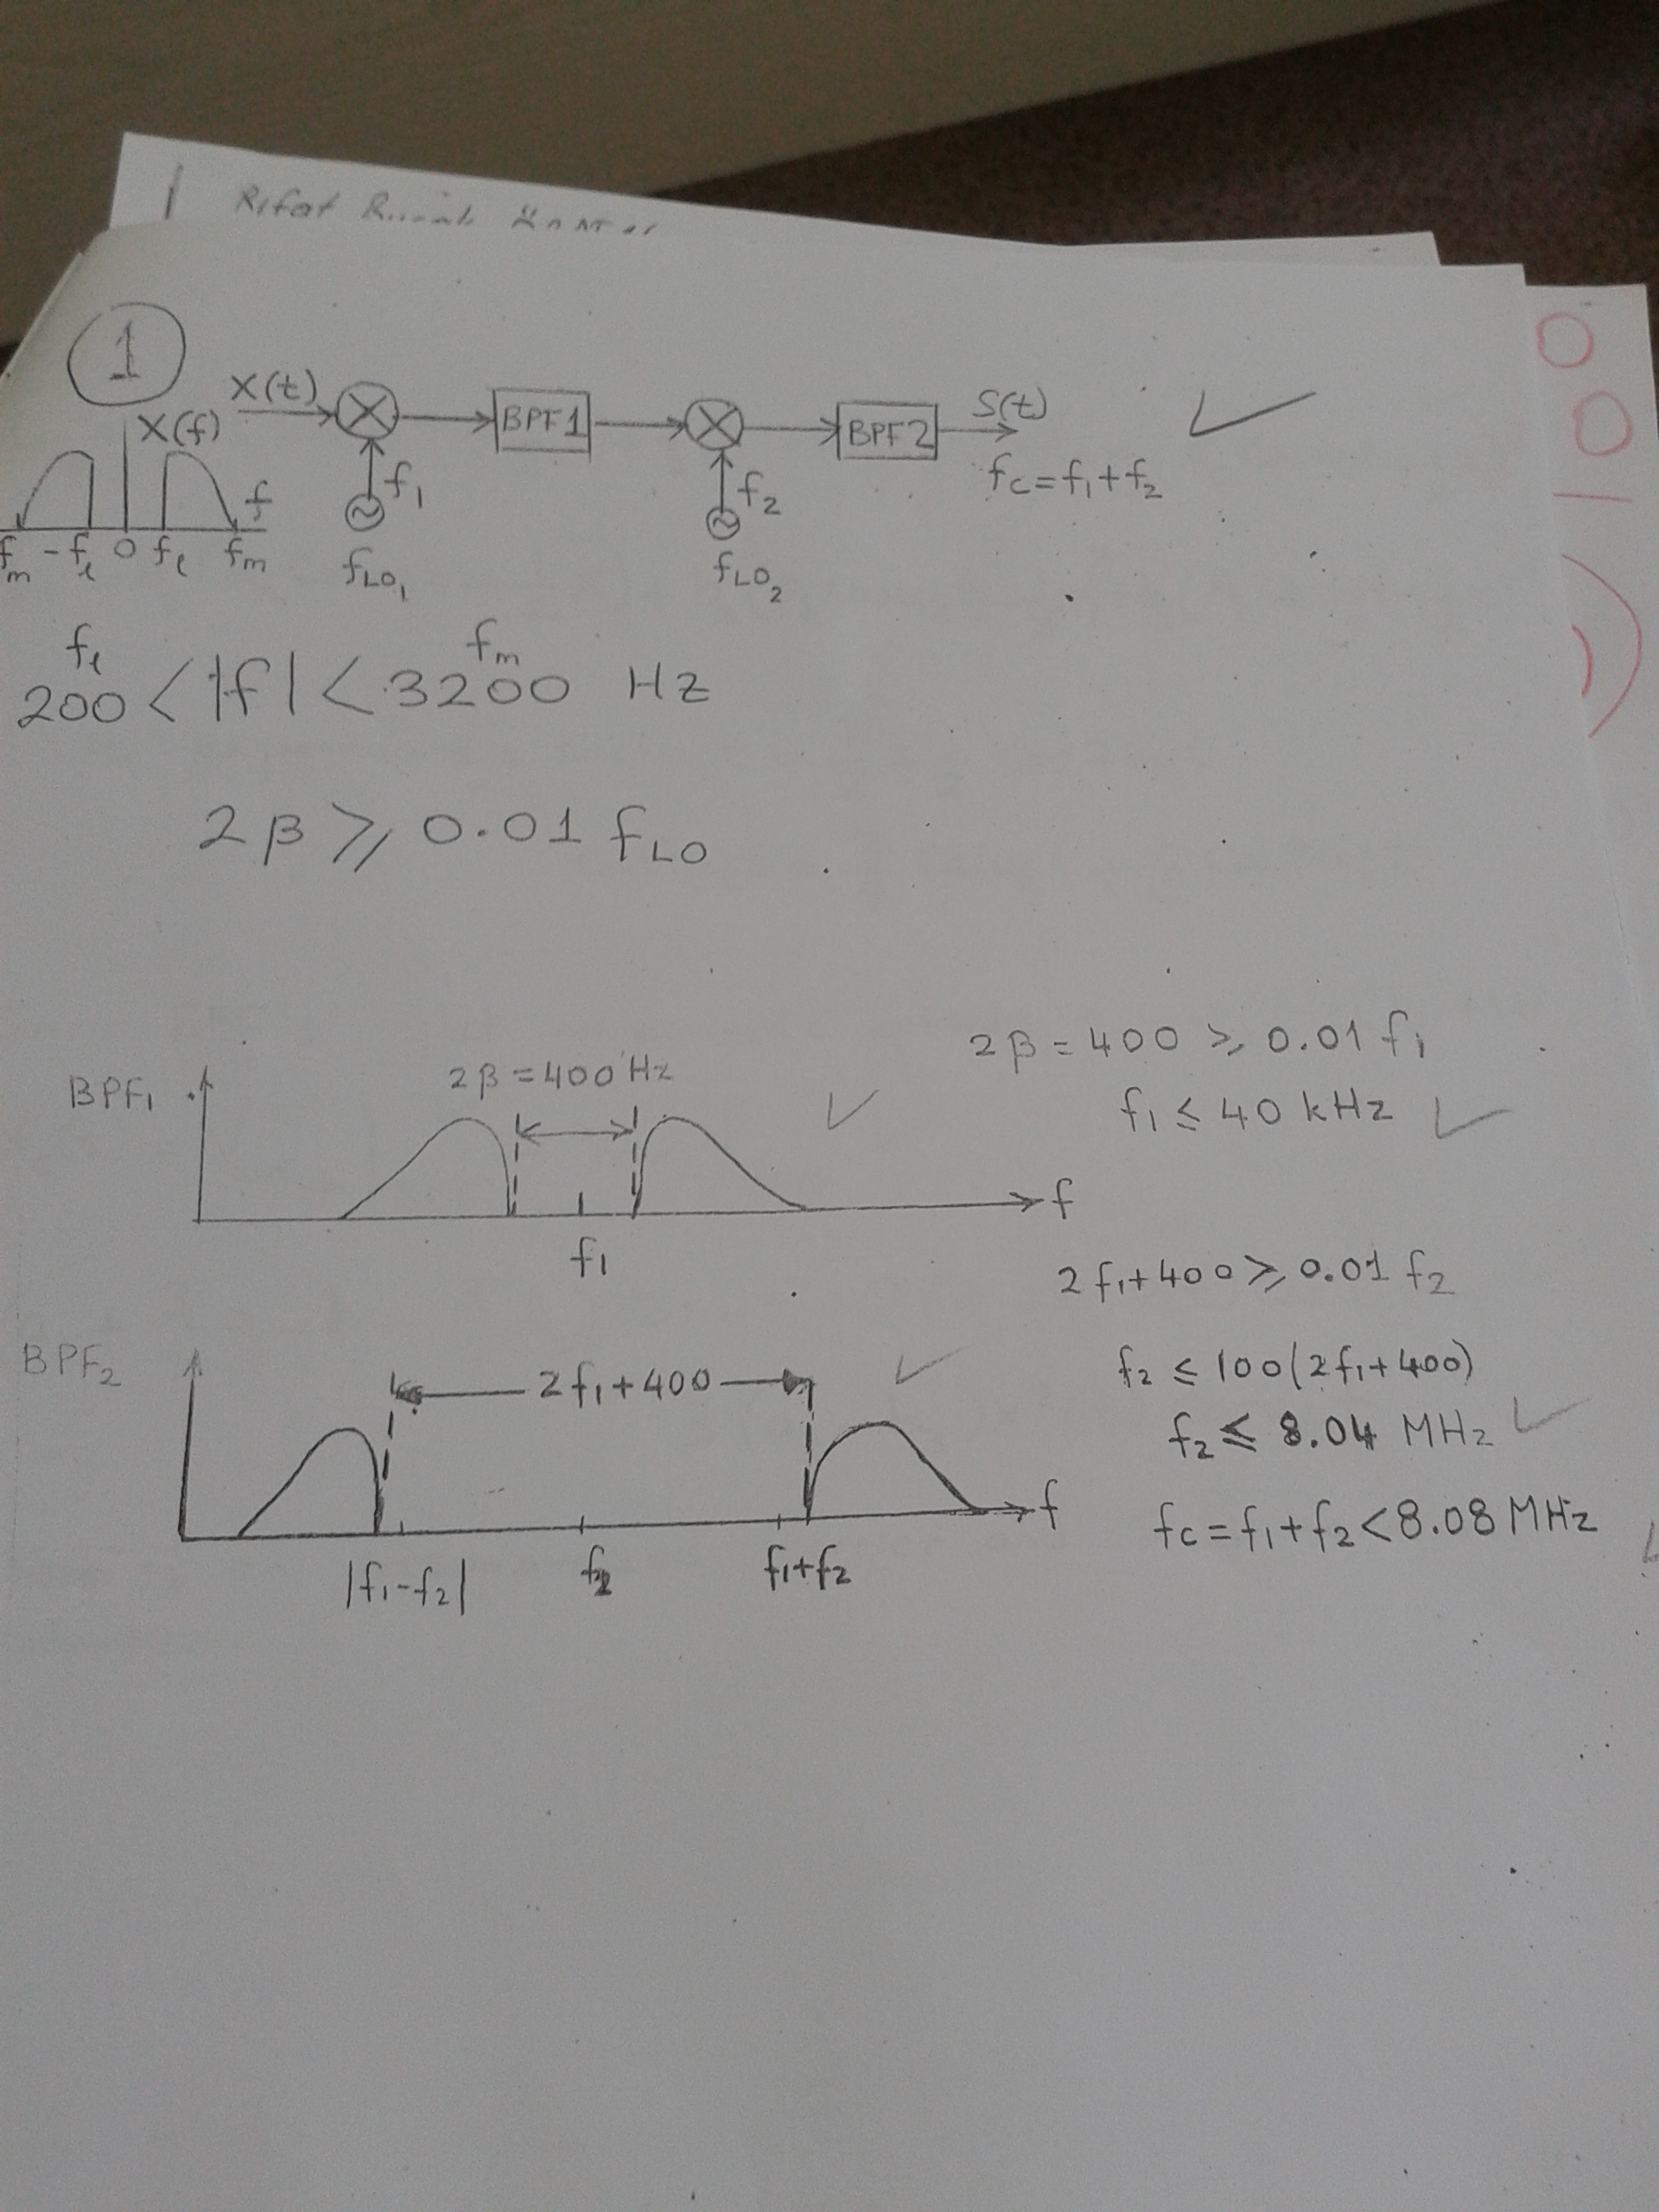 1 Rifat
1
X(t)
BPF1
BPF2
S(t)
X(f)
f₁
f₂
fc=f₁+f₂
f
fm -fℓ 0 fℓ fm
fLO₁
fLO₂
fℓ fm
200 < |f| < 3200 Hz
2β ≥ 0.01 fLO
BPF₁
2β=400 Hz
f₁
f
2β = 400 ≥ 0.01 f₁
f₁ ≤ 40 kHz
2f₁+400 ≥ 0.01 f₂
BPF₂
2f₁+400
|f₁-f₂|
f₂
f₁+f₂
f
f₂ ≤ 100(2f₁+400)
f₂ ≤ 8.04 MHz
fc=f₁+f₂<8.08 MHz